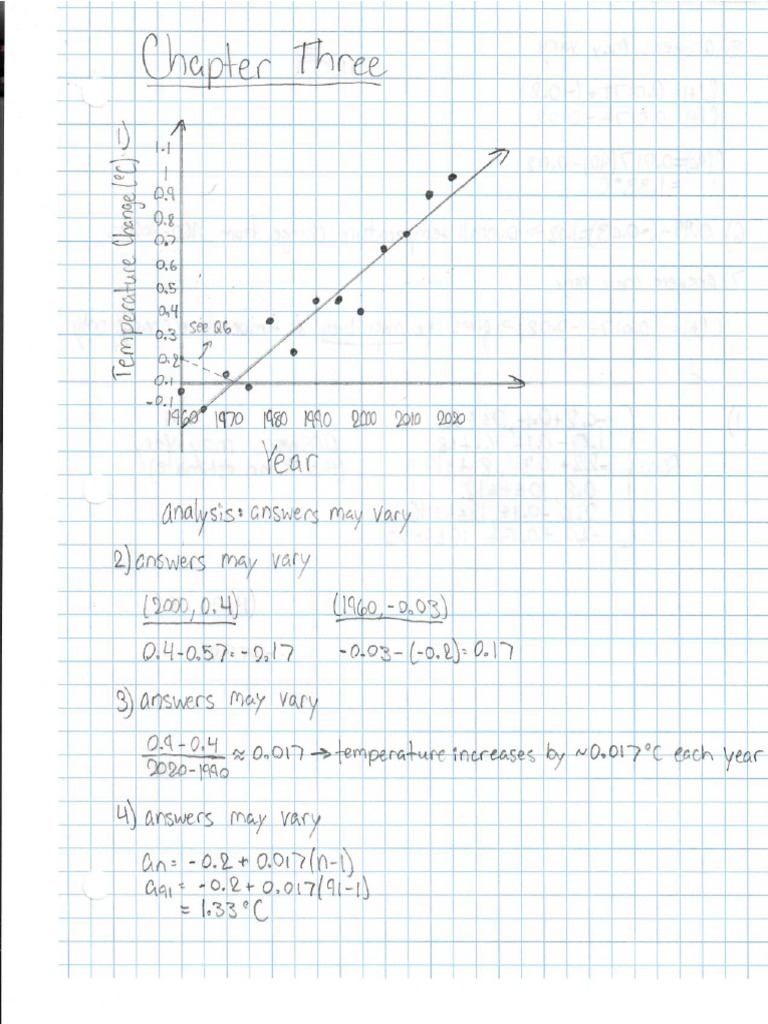 Chapter Three
Temperature Change (°C)
1.1
1
0.9
0.8
0.7
0.6
0.5
0.4
0.3
0.2
0.1
-0.1
see Q6
1960 1970 1980 1990 2000 2010 2020
Year
analysis: answers may vary
2) answers may vary
(2000, 0.4) (1960, -0.03)
0.4-0.57=-0.17 -0.03-(-0.2)=0.17
3) answers may vary
0.9-0.4
2020-1990
≈ 0.017 → temperature increases by ~0.017°C each year
4) answers may vary
an = -0.2 + 0.017(n-1)
a91 = -0.2 + 0.017(91-1)
= 1.33°C